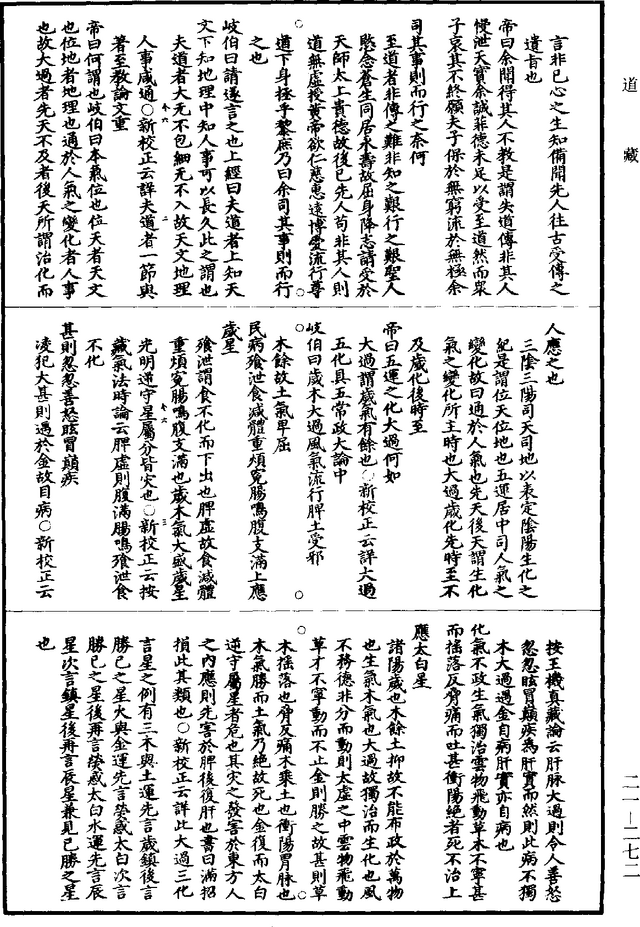 道藏
言非已心之生知備聞先人往古受傳之
遺旨也
帝曰余聞得其人不教是謂失道傳非其人
慢泄天寶余誠菲德未足以受至道然而眾
子哀其不終願夫子保於無窮流於無極余
司其事則而行之奈何
至道者非傳之難非知之艱行之艱聖人
愍念蒼生同居永壽故屈身降志請受於
天師太上貴德故後已先人苟非其人則
道無虛授黃帝欲仁慈惠遠博愛流行尊
道下身拯乎黎庶乃曰余司其事則而行
之也
岐伯曰請遂言之也上經曰夫道者上知天
文下知地理中知人事可以長久此之謂也
夫道者大無不包細無不入故天文地理
人事咸通○新校正云詳夫道者一節與
著至教論文重
帝曰何謂也岐伯曰本氣位也位天者天文
也位地者地理也通於人氣之變化者人事
也故大過者先天不及者後天所謂治化而
人應之也
三陰三陽司天司地以表定陰陽生化之
紀是謂位天位地也五運居中司人氣之
變化故曰通於人氣也先天後天謂生化
氣之變化所主時也大過歲化先時至不
及歲化後時至
帝曰五運之化大過何如
大過謂歲氣有餘也○新校正云詳大過
五化具五常政大論中
岐伯曰歲木大過風氣流行脾土受邪
木餘故土氣卑屈
民病飱泄食減體重煩冤腸鳴腹支滿上應
歲星
飱泄謂食不化而下出也脾虛故食減體
重煩冤腸鳴腹支滿也歲木氣大盛歲星
光明逆守星屬分皆灾也○新校正云按
藏氣法時論云脾虛則腹滿腸鳴飱泄食
不化
甚則忽忽善怒眩冒顛疾
凌犯大甚則遇於金故目病○新校正云
按玉機真藏論云肝脉大過則令人善怒
忽忽眩冒顛疾為肝實而然則此病不獨
木大過遇金自病肝實亦自病也
化氣不政生氣獨治雲物飛動草木不寧甚
而搖落反脅痛而吐甚衝陽絕者死不治上
應太白星
諸陽歲也木餘土抑故不能布政於萬物
也生氣木氣也大過故獨治而生化也風
不務德非分而動則太虛之中雲物飛動
草木不寧動而不止金則勝之故甚則草
木搖落也脅反痛木乘土也衝陽胃脉也
木氣勝而土氣乃絕故死也金復而太白
逆守屬星者危也其灾之發害於東方人
之內應則先害於脾後復肝也書曰滿招
損此其類也○新校正云詳此大過三化
言星之例有三木與土運先言歲鎮後言
勝已之星火與金運先言熒惑太白次言
勝已之星後再言熒惑太白水運先言辰
星次言鎮星後再言辰星兼見已勝之星
也
二一—二七二